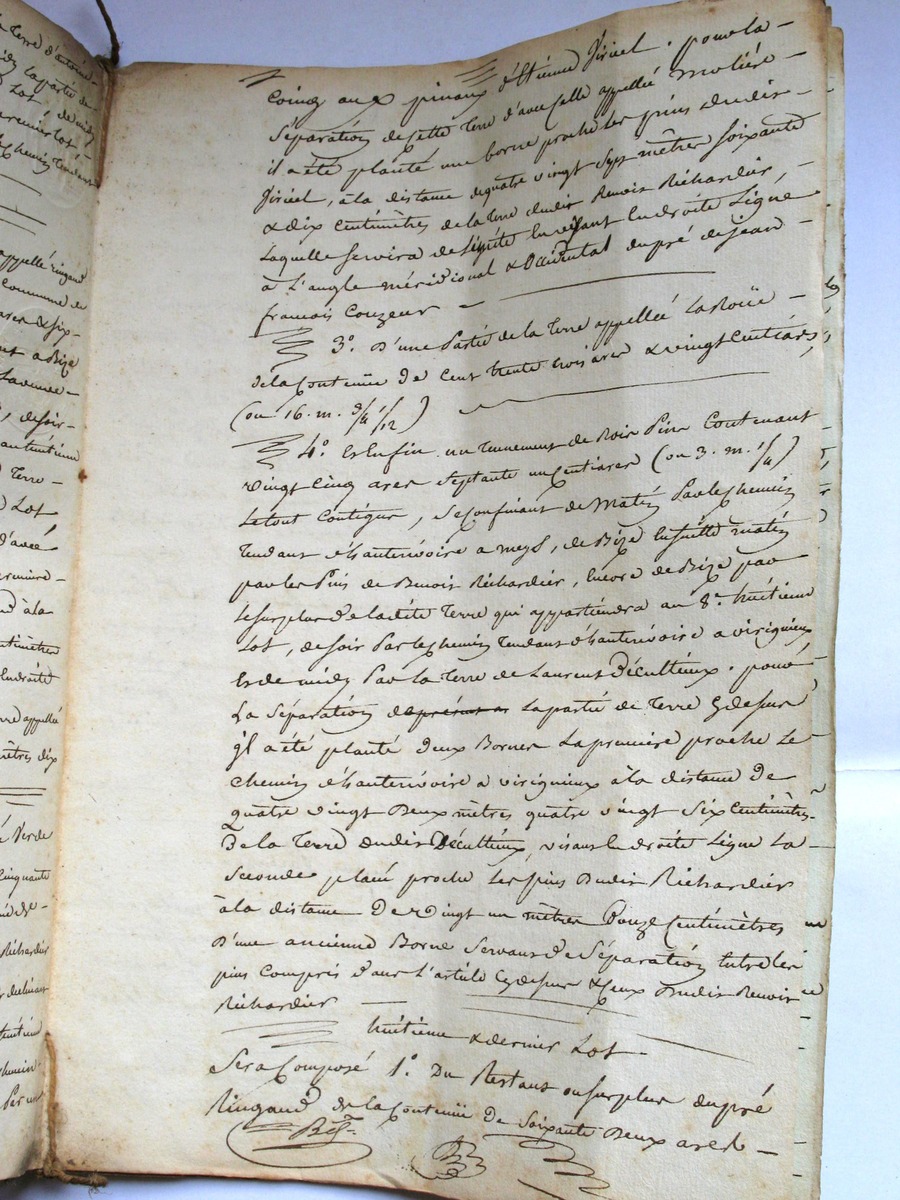 terre d'antoine
la partie de
Lot, de midy
premier lot,
chemin tendant
appellé ringaud
Commune de
ares & six
a Bize
de soir
Terre
Lot
d'avec
première
à la
centimètres
en droite
terre appellée
mètres dix
Verde
Cinquante
Richardier
declinant
chemin
Par un
Coing aux pinaux d'Etienne Jiriel. pour la
Séparation de cette Terre d'avec celle appellée moliére
il a été planté une borne proche les pins dudit
Jiriel, à la distance de quatre vingt sept mètres soixante
& dix Centimètres de la terre dudit Benoit Richardier,
Laquelle Servira de limite en visant en droite Ligne
à L'angle méridional & Occidental du pré de jean
francois Couzeur
3°. D'une Partie de la Terre appellée La Roüe
de la Contenüe de Cent trente trois ares & vingt Centiares
(ou 16. m. 3/4 1/12)
4°. Et Enfin un tennement de Bois Pins Contenant
vingt Cinq ares Septante un Centiares (ou 3. m. 1/4)
Le tout Contigus, Se Confinant de Matin Par le chemin
Tendant d'hauterivoire a meys, de Bize Ensuitte matin
par les Pins de Benoit Richardier, Encore de Bize par
Le Surplus de la dite Terre qui appartiendra au 8e. huitieme
Lot, de soir Par le chemin Tendant d'hauterivoire a viricignieux
Et de midy Par la Terre de Laurent Décultieux. pour
La Séparation de présent La partie de Terre Cy dessus
jl a été planté deux Bornes La premiere proche Le
Chemin d'hauterivoire a viricignieux à la distance de
quatre vingt Deux mètres quatre vingt Six Centimètres
De la Terre dudit Décultieux, visant en droite Ligne La
Seconde planté proche Les pins Dudit Richardier
à la distance De vingt un mètres Douze Centimètres
D'une ancienne Borne Servant de Séparation Entre les
pins Compris dans L'article Cy dessus & Ceux Dudit Benoit
Richardier
huitieme & dernier Lot
Sera Composé 1°. Du Restant ou Surplus du pré
Ringaud de la Contenüe de Soixante Deux ares